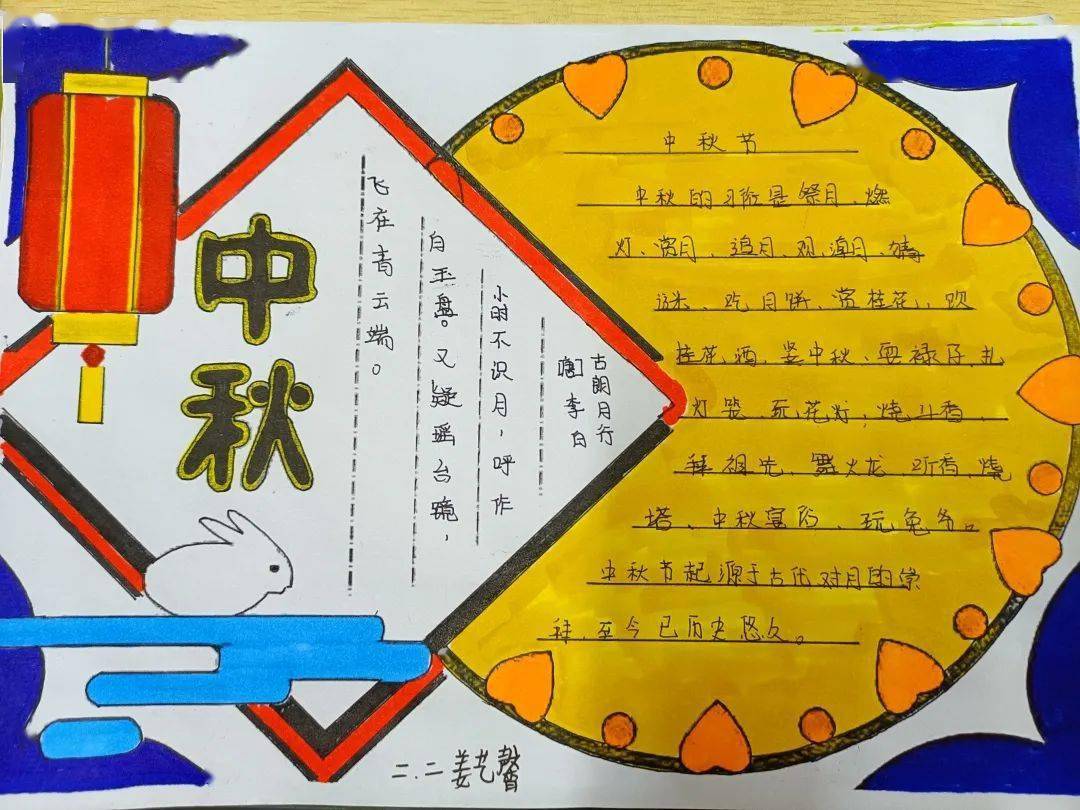 中秋
古朗月行
[唐]李白
小时不识月，呼作
白玉盘。又疑瑶台镜，
飞在青云端。
中秋节
中秋的习俗是祭月、燃
灯、赏月、追月、观潮、猜
谜、吃月饼、赏桂花、饮
桂花酒、竖中秋、耍禄仔、扎
灯笼、玩花灯、烧斗香、
拜祖先、舞火龙、听香、烧
塔、中秋宴俗、玩兔爷。
中秋节起源于古代对月的崇
拜，至今已历史悠久。
二.二姜艺馨